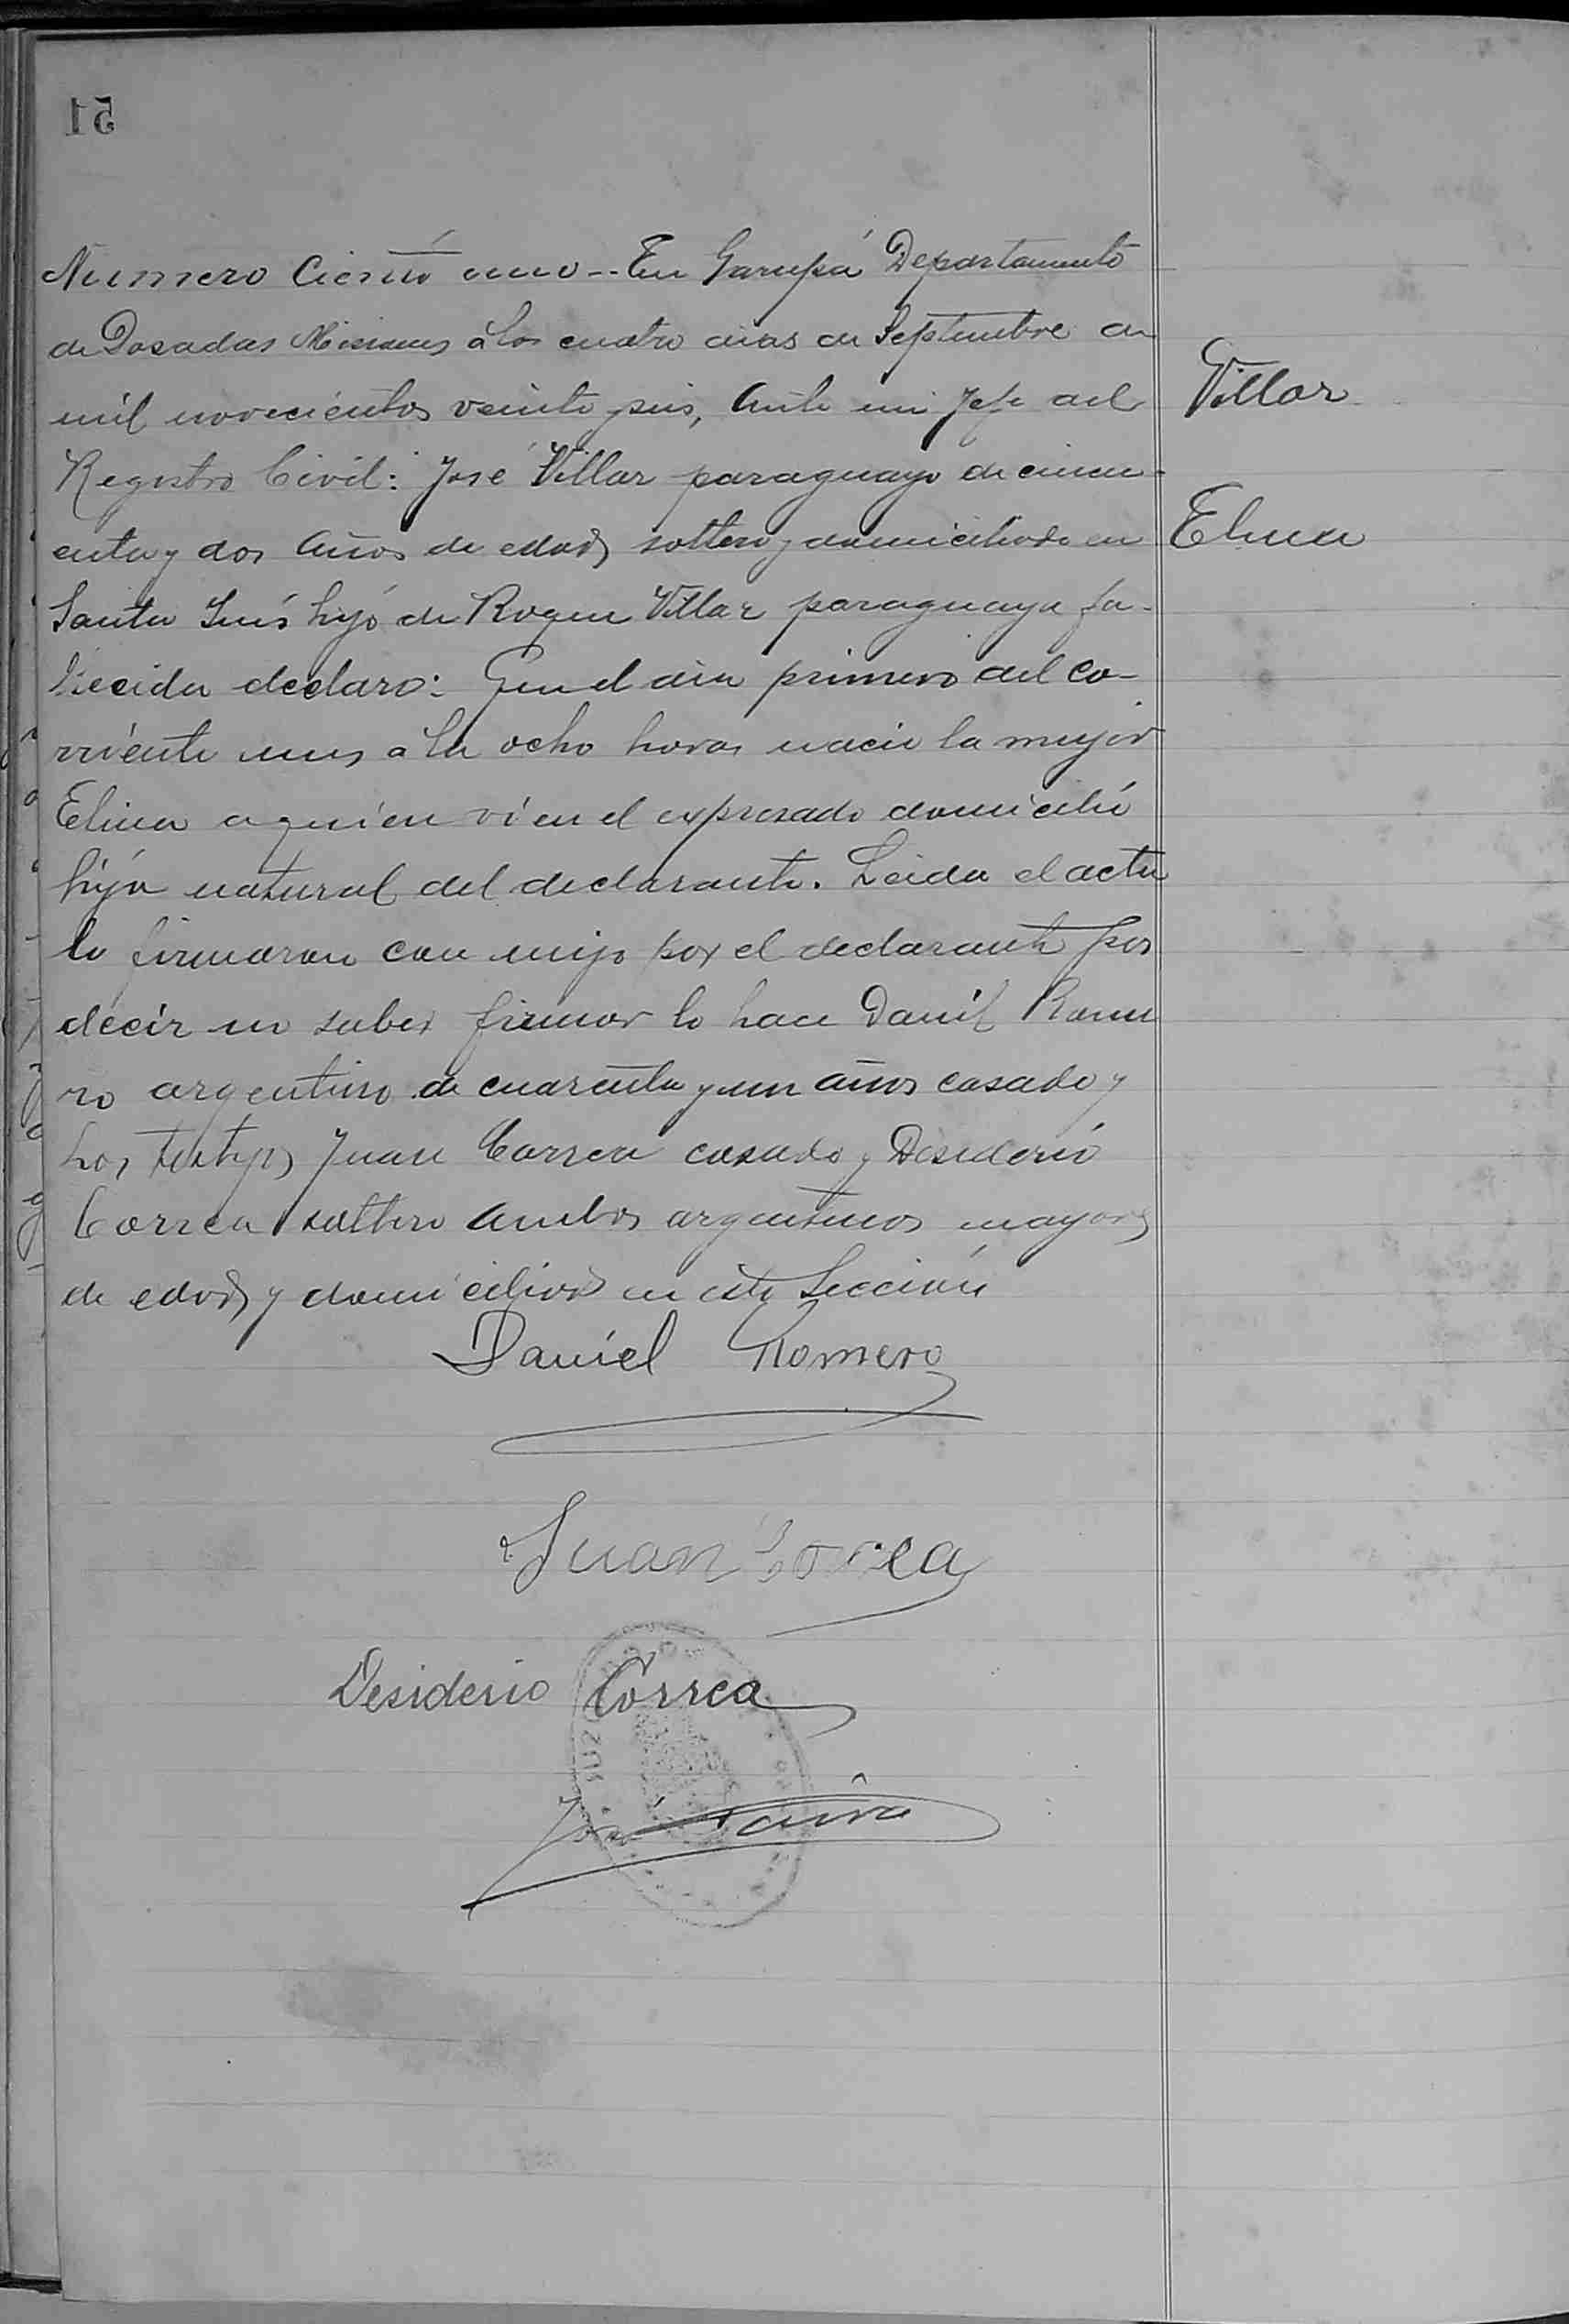 51
Numero Ciento uno -- En Garupá Departamento
de Posadas Misiones á los cuatro dias de Septiembre de
mil novecientos veinte y seis, Ante mi Jefe del
Registro Civil: José Villar paraguayo de cincu-
enta y dos años de edad, soltero y domiciliado en
Santa Inés hijo de Roque Villar paraguaya fa-
llecida declaro: Que el dia primero del co-
rriente mes a la ocho horas nacio la mujer
Elina a quien vi en el expresado domicilió
hija natural del declarante. Leida el acta
lo firmaron con migo por el declarante por
decir no saber firmar lo hace Daniel Rome
ro argentino de cuarenta y un años casado y
los testigos Juan Correa casado y Desiderió
Correa soltero ambos argentinos mayores
de edad, y domiciliados en esta Sección
Daniel Romero
Juan Correa
Desiderio Correa
José
Villar
Elina